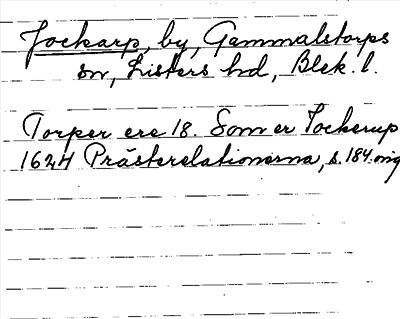 Jockarp, by, Gammalstorps
sn, Listers hd, Blek. l.
Torper ere 18. Som er Jockerup
1624 Prästerelationerna, s. 184. orig